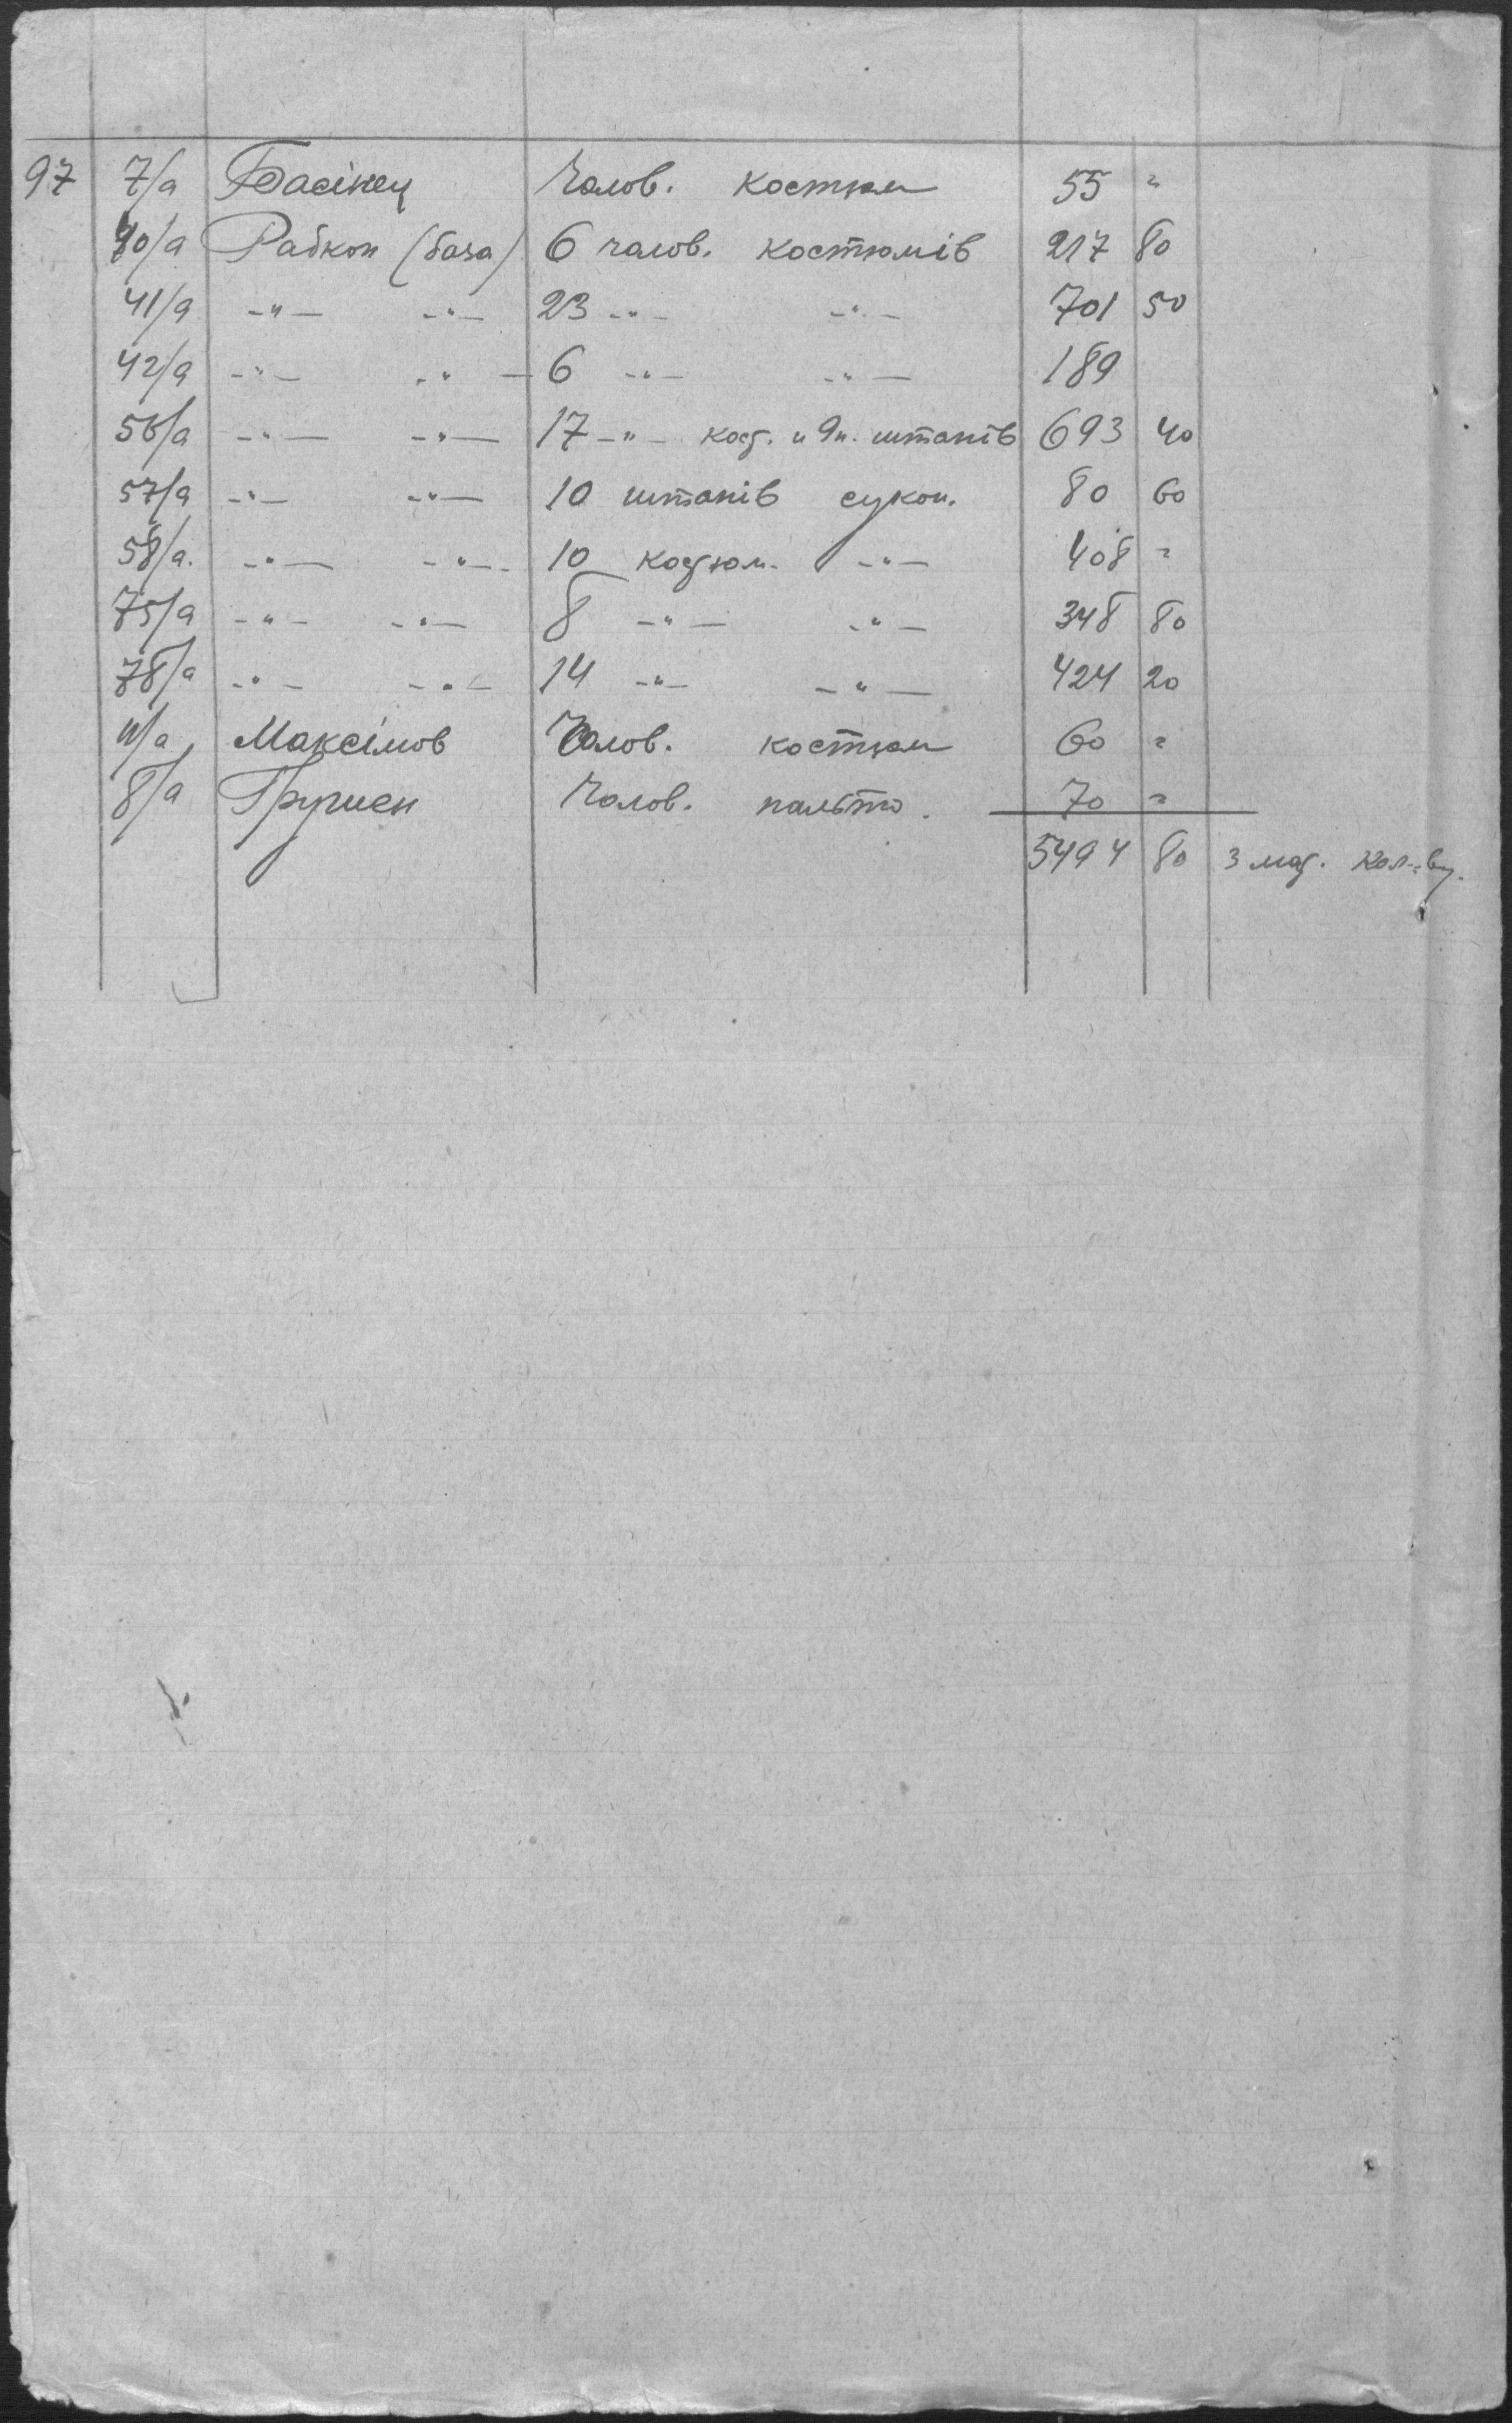 97 7/а Басінец Чолов. костюм 55 "
40/а Рабкоп (база) 6 чолов. костюмів 217 80
41/а -"- -"- 23 -"- -"- 701 50
42/а -"- -"- 6 -"- -"- 189
56/а -"- -"- 17 -"- кост. и 9п. штанів 693 40
57/а -"- -"- 10 штанів сукон. 80 60
58/а. -"- -"- 10 костюм. -"- 408 "
75/а -"- -"- 8 -"- -"- 348 80
78/а -"- -"- 14 -"- -"- 424 20
4/а Максімов Чолов. костюм 60 "
8/а Чолов. пальто. 70 "
5494 80 з маг.